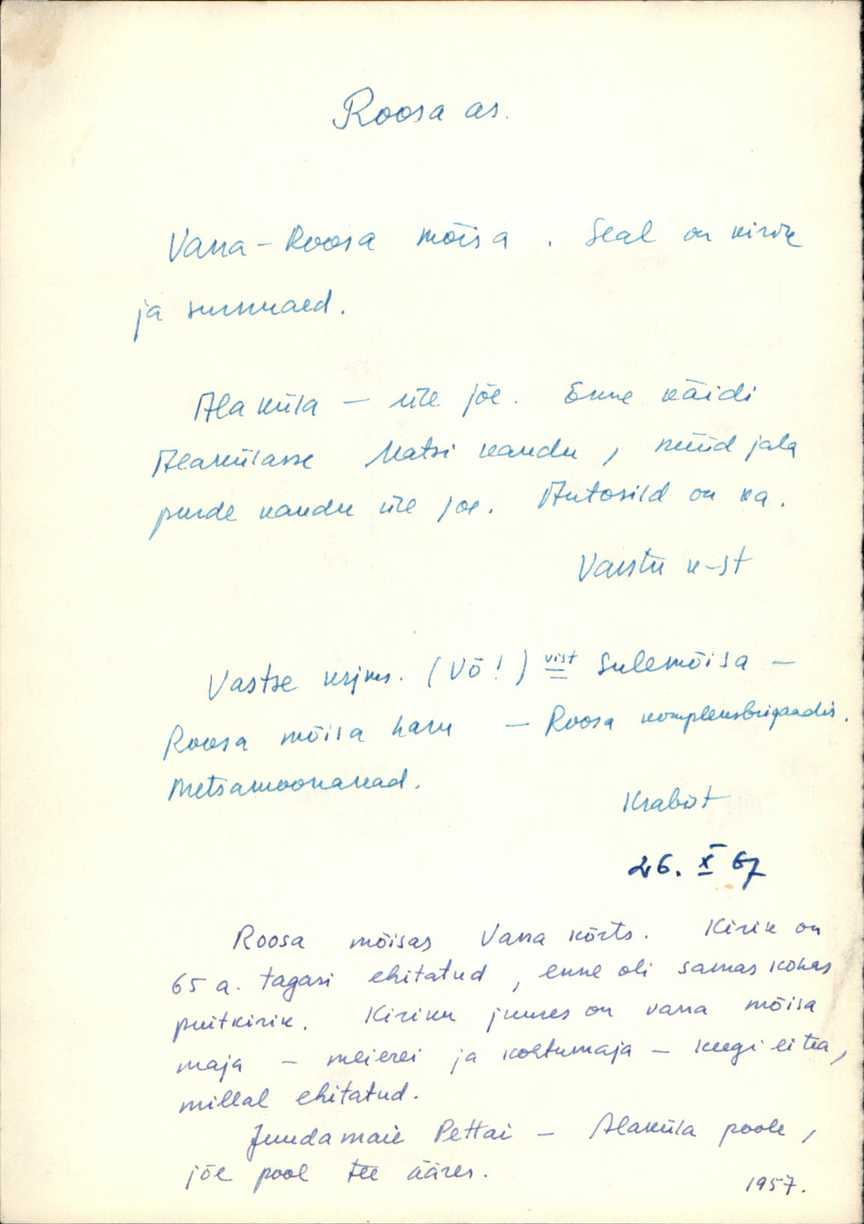 Roosa as.
Vana-Roosa mõisa. Seal on kirik
ja surnuaed.
Alaküla – üle jõe. Enne käidi
Alakülasse Matsi kaudu, nüüd jala
purde kaudu üle jõe. Autosild on ka.
Varstu k-st
Vastse krjms. (Võ!) vist Sulemõisa –
Roosa mõisa haru – Roosa kompleksbrigaadis.
Metsamoonakad.
Krabilt
26. X 67
Roosa mõisas Vana kõrts. Kirik on
65 a. tagasi ehitatud, enne oli samas kohas
puitkirik. Kiriku juures on vana mõisa
maja – meierei ja kohtumaja – keegi ei tea,
millal ehitatud.
Juudamäe Pettai – Alaküla poole,
jõe pool tee ääres.
1957.